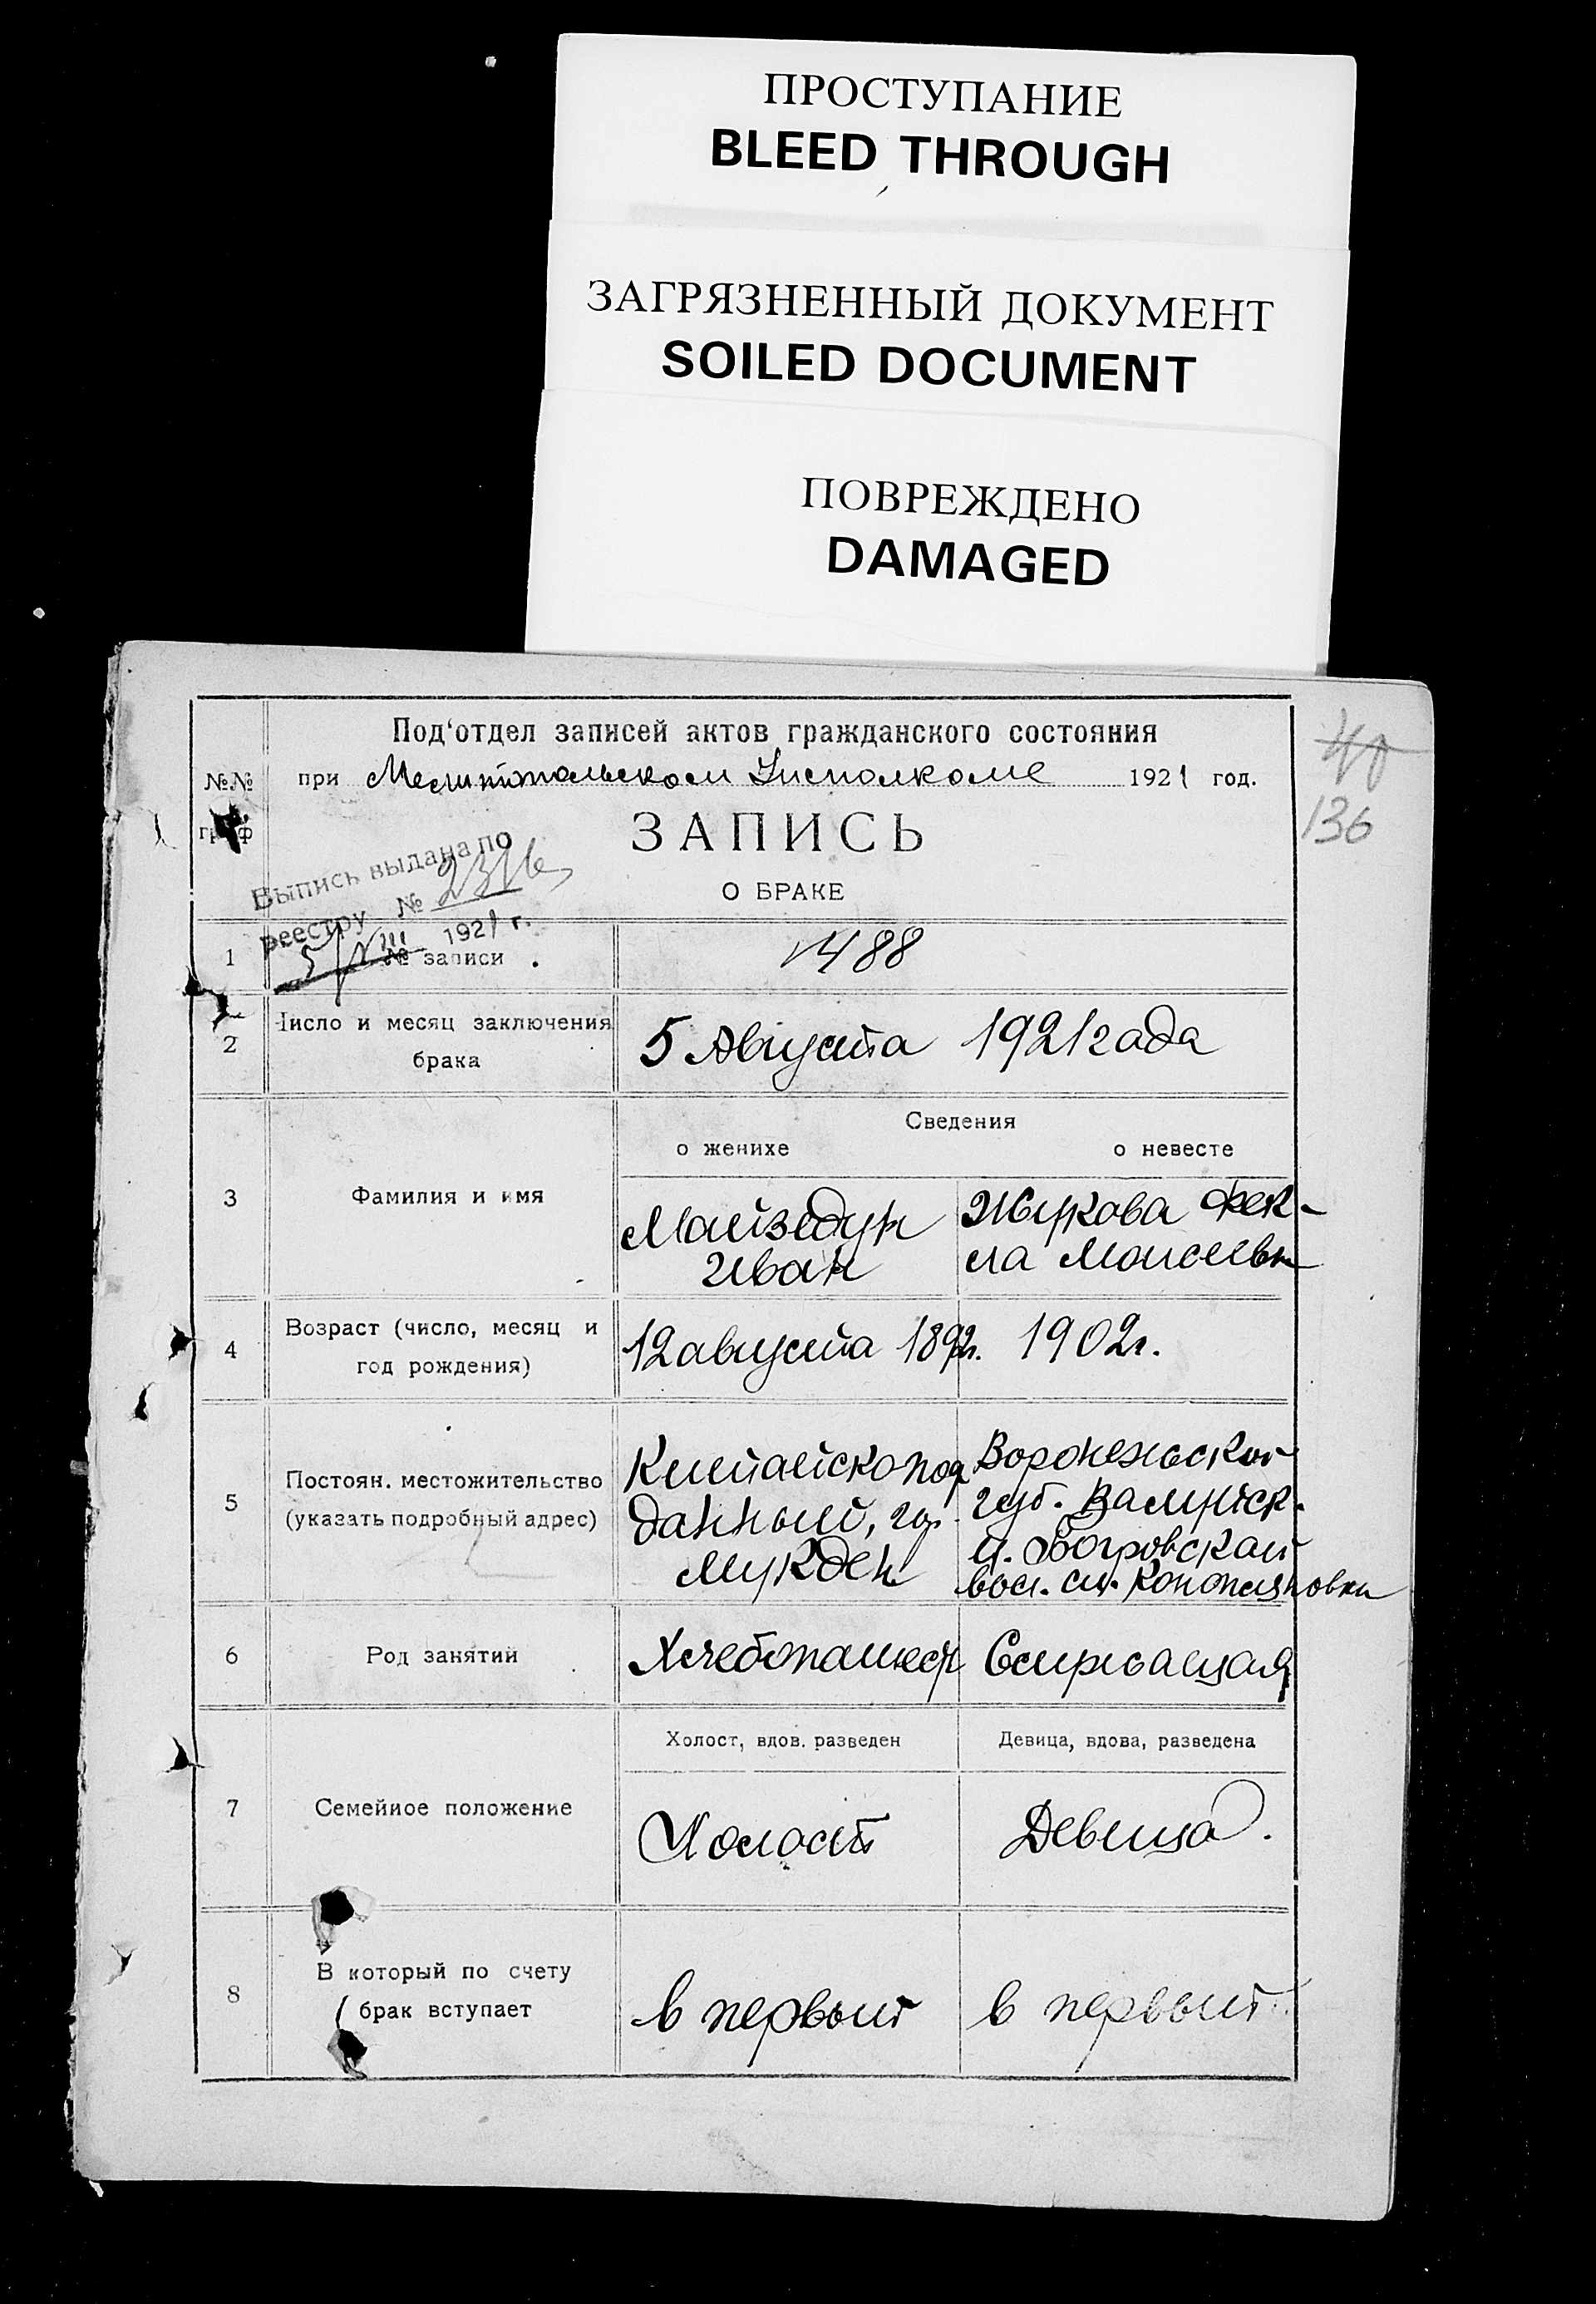 ПРОСТУПАНИЕ
BLEED THROUGH
ЗАГРЯЗНЕННЫЙ ДОКУМЕНТ
SOILED DOCUMENT
ПОВРЕЖДЕНО
DAMAGED
Под'отдел записей актов гражданского состояния
№№ при Мелитопольском Исполкоме 1921 год.
136
граф
ЗАПИСЬ
О БРАКЕ
Выпись выдана по
реестру №
5/VIII 1921 г.
1 № записи 1488
2 Число и месяц заключения брака 5 Августа 1921 года
Сведения
о женихе о невесте
3 Фамилия и имя
Майзедун Жукова Фек-
Иван ла Моисеевн
4 Возраст (число, месяц и
год рождения)
12 августа 1892г. 1902г.
5 Постоян. местожительство
(указать подробный адрес)
Китайскопод Воронежской
данный, гор. губ. Валуйск.
Мукден у.
вол. сл. Конопляновки
6 Род занятий Хлебопашец
7 Семейное положение
Холост, вдов. разведен Девица, вдова, разведена
Холост Девица.
8 В который по счету
брак вступает
в первый в первый